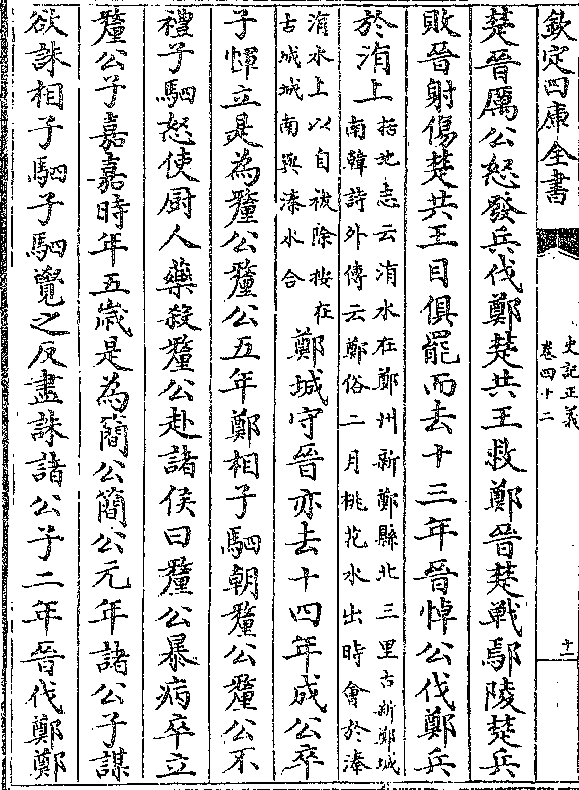 欽定四庫全書
史記正義
卷四十二
十一
楚晉厲公怒發兵伐鄭楚共王救鄭晉楚戰鄢陵楚兵
敗晉射傷楚共王目俱罷而去十三年晉悼公伐鄭兵
於洧上
括地志云洧水在鄭州新鄭縣北三里古新鄭城
南韓詩外傳云鄭俗二月桃花水出時會於溱
洧水上以自祓除按在
古城城南與溱水合
鄭城守晉亦去十四年成公卒
子惲立是為釐公釐公五年鄭相子駟朝釐公釐公不
禮子駟怒使厨人藥殺釐公赴諸侯曰釐公暴病卒立
釐公子嘉嘉時年五歲是為簡公簡公元年諸公子謀
欲誅相子駟子駟覺之反盡誅諸公子二年晉伐鄭鄭